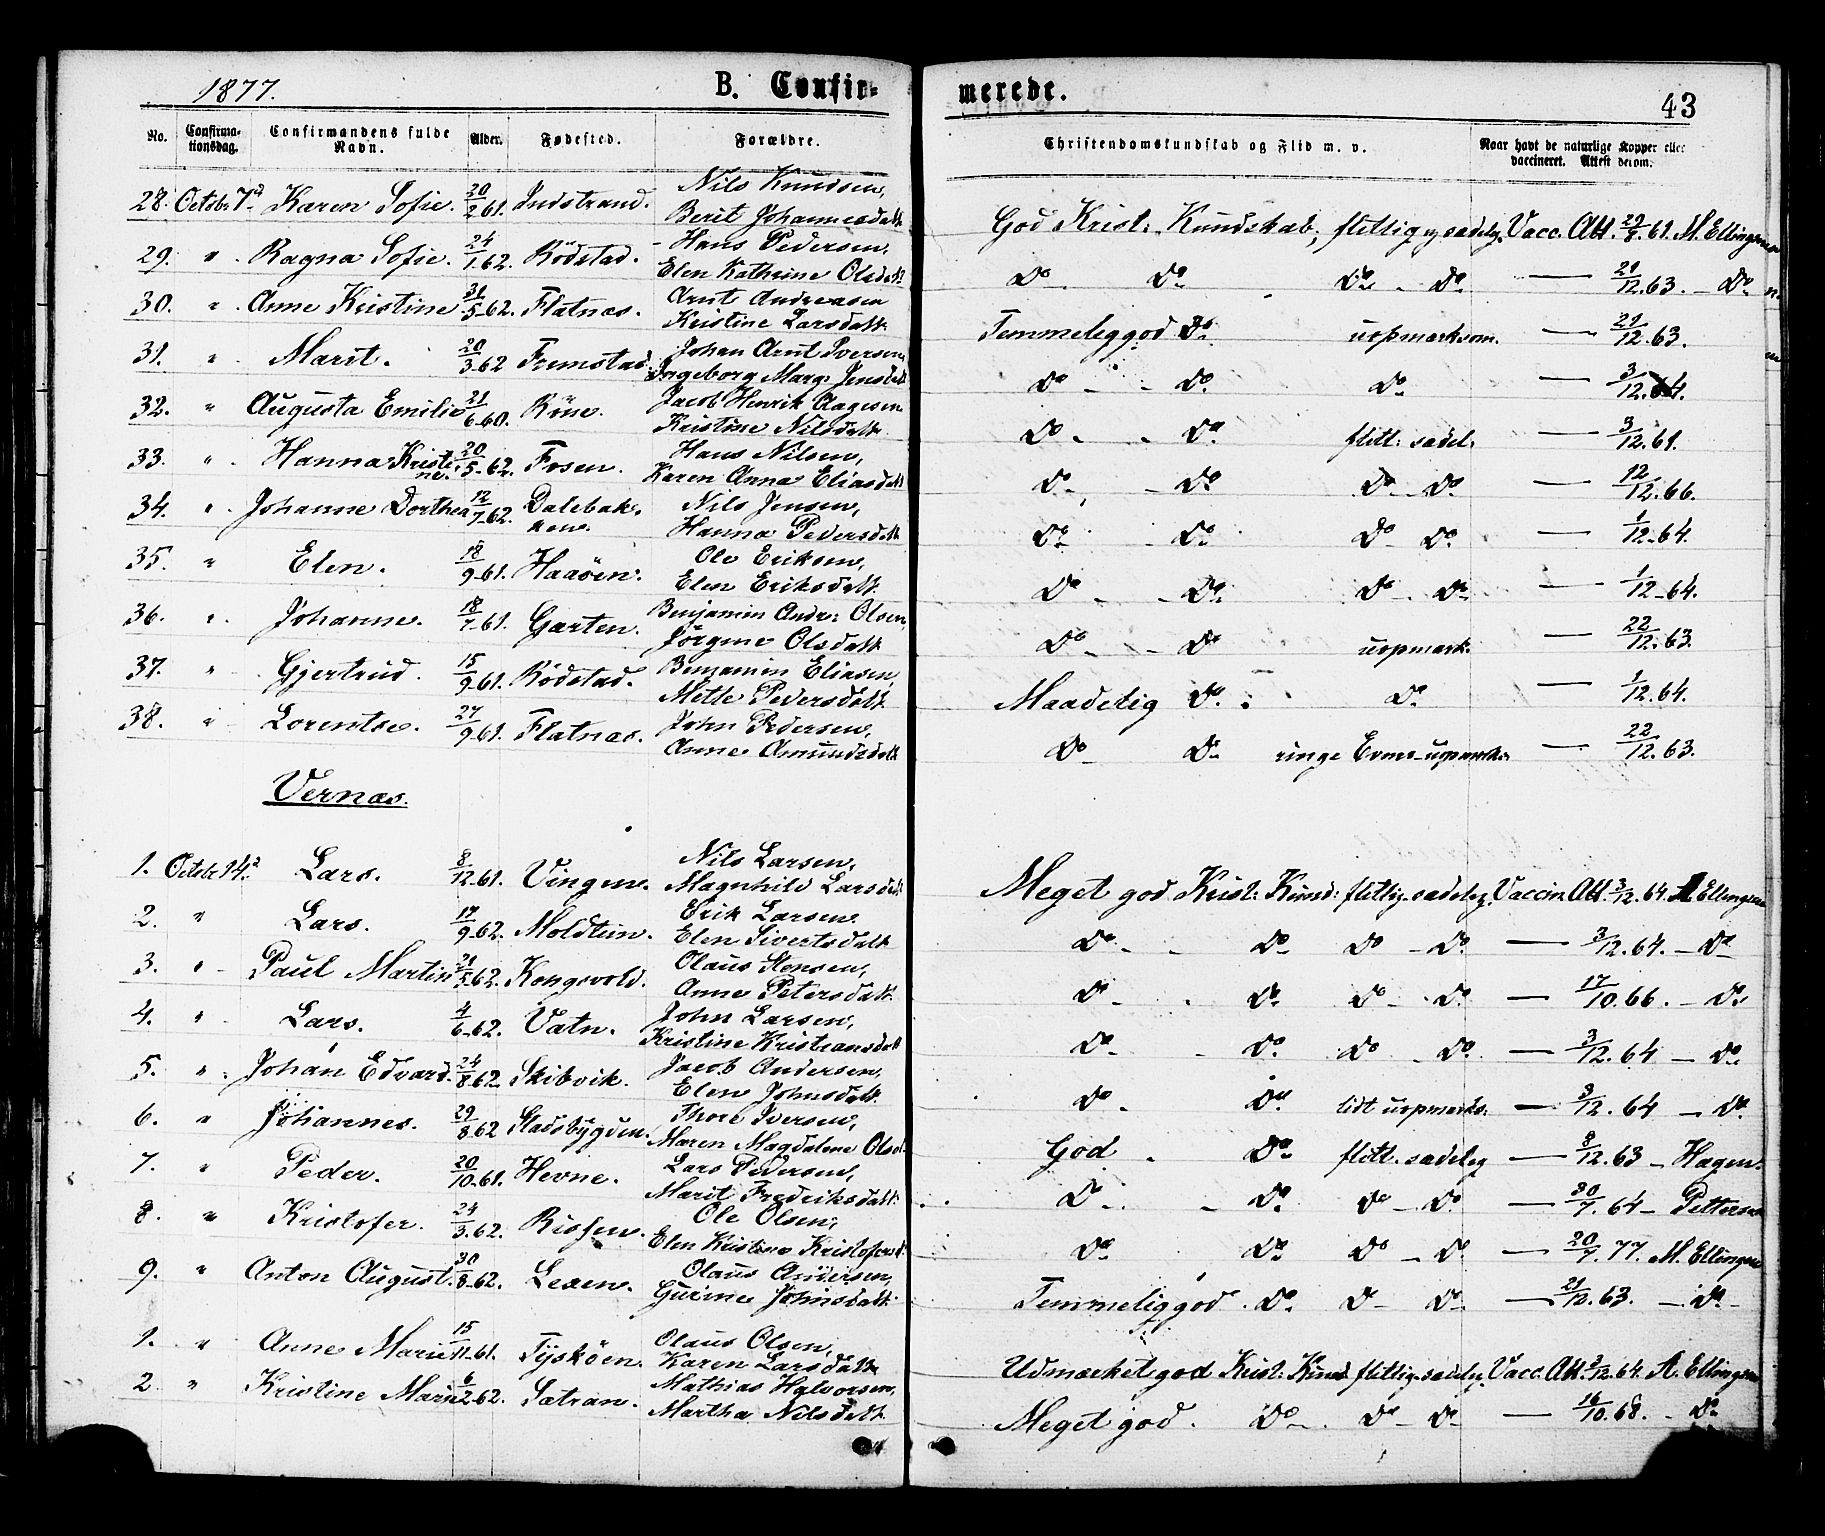 1877. B. Confir= merede. 43
No. Confirma- tionsdag. Confirmandens fulde Navn. Alder. Fødested. Forældre. Christendomskundskab og Flid m. v. Naar havt de naturlige Kopper eller vaccineret. Attest derom.
28. Octobr 7d Karen Sofie. 20/2 61. Indstrand. Nils Knudsen, Berit Johannesdatt. God Krist. Kundskab, flittig og sædelig. Vacc. Att. 29/8. 61. M. Ellingsen
29. " Ragna Sofie. 24/1 62. Rödstad. Hans Pedersen, Elen Kathrine Olsdatt. Do Do Do - Do — 21/12. 63. - Do
30. " Anne Kristine 31/5 62. Flatnæs. Arnt Andreasen Kristine Larsdatt. Temmelig god Do uopmærksom. — 21/12. 63.
31. " Marit. 20/3 62 Fremstad. Johan Arnt Iversen, Ingeborg Marg. Jensdatt. Do - Do Do — 3/12. 64.
32. " Augusta Emilie 21/6 60. Rise. Jacob Henrik Aagesen Kristine Nilsdatt. Do - Do flitt. sædel. — 3/12. 61.
33. " Hanna Kristine. 20/5 62. Fosen. Hans Nilsen, Karen Anna Eliasdatt. Do - Do Do - Do — 12/12. 66.
34. " Johanne Dorthea 12/7 62. Dalebakken. Nils Jensen, Hanna Pedersdatt. Do - Do Do - Do — 1/12. 64.
35. " Elen. 18/9 61. Haaöen. Ole Eriksen, Elen Eriksdatt. Do - Do Do - Do — 1/12. 64.
36. " Johanne. 18/7 61. Garten. Benjamin Andr. Olsen, Jörgine Olsdatt. Do - Do uopmærk. — 22/12. 63.
37. " Gjertrud. 15/9 61. Rödstad. Benjamin Eliasen, Mette Pedersdatt. Maadelig Do Do — 1/12. 64.
38. " Lorentse. 27/9 61. Flatnæs. John Pedersen, Anne Amundsdatt. Do Do ringe Evne - uopmærk. — 22/12. 63.
Vernæs.
1. Octobr 14. Lars. 8/12 61. Vingen. Nils Larsen, Magnhild Larsdatt. Meget god Krist. Kund. flittig - sædelig. Vaccin. Att. 3/12. 64. A Ellingsen
2. " Lars. 19/9 62. Moldtun. Erik Larsen Elen Sivertsdatt. Do - Do Do - Do — 3/12. 64. - Do
3. " Paul Martin 21/5 62. Kongsvold. Olaus Stensen, Anne Petersdatt. Do - Do Do - Do — 17/10. 66. - Do
4. " Lars. 4/6 62. Vatn. John Larsen, Kristine Kristiansdatt. Do - Do Do - Do — 3/12. 64 - Do
5. " Johan Edvard. 24/8 62. Skibvik. Jacob Andersen, Elen Johnsdatt. Do - Do lidt uopmærks. — 3/12. 64 - Do
6. " Johannes. 29/8 62 Stadsbygden. Thore Iversen, Maren Magdalene Olsd. God - Do flitt. sædelig — 8/12. 63 - Hagen.
7. " Peder. 20/10 61. Hevne. Lars Pedersen, Marit Fredriksdatt. Do - Do Do - Do — 30/7. 64 - Pettersen
8. " Kristofer. 24/3. 62. Rissen. Ole Olsen, Elen Kristine Kristofersd. Do Do Do - Do — 20/7. 77. M. Ellingsen
9. " Anton August. 30/8 62. Lexen. Olaus Andersen, Gurine Johnsdatt. Temmelig god. Do Do - Do — 21/12. 63. - Do -
1. " Anne Marie 15/11 61. Tysköen. Olaus Olsen, Karen Larsdatt. Udmærket god Krist. Kund. flittig - sædelig. Vacc. Att. 3/12. 64. A. Ellingsen
2 " Kristine Marie 6/2 62. Sætran. Mathias Halvorsen, Martha Nilsdatt. Meget god. Do Do - Do — 16/10. 68. - Do